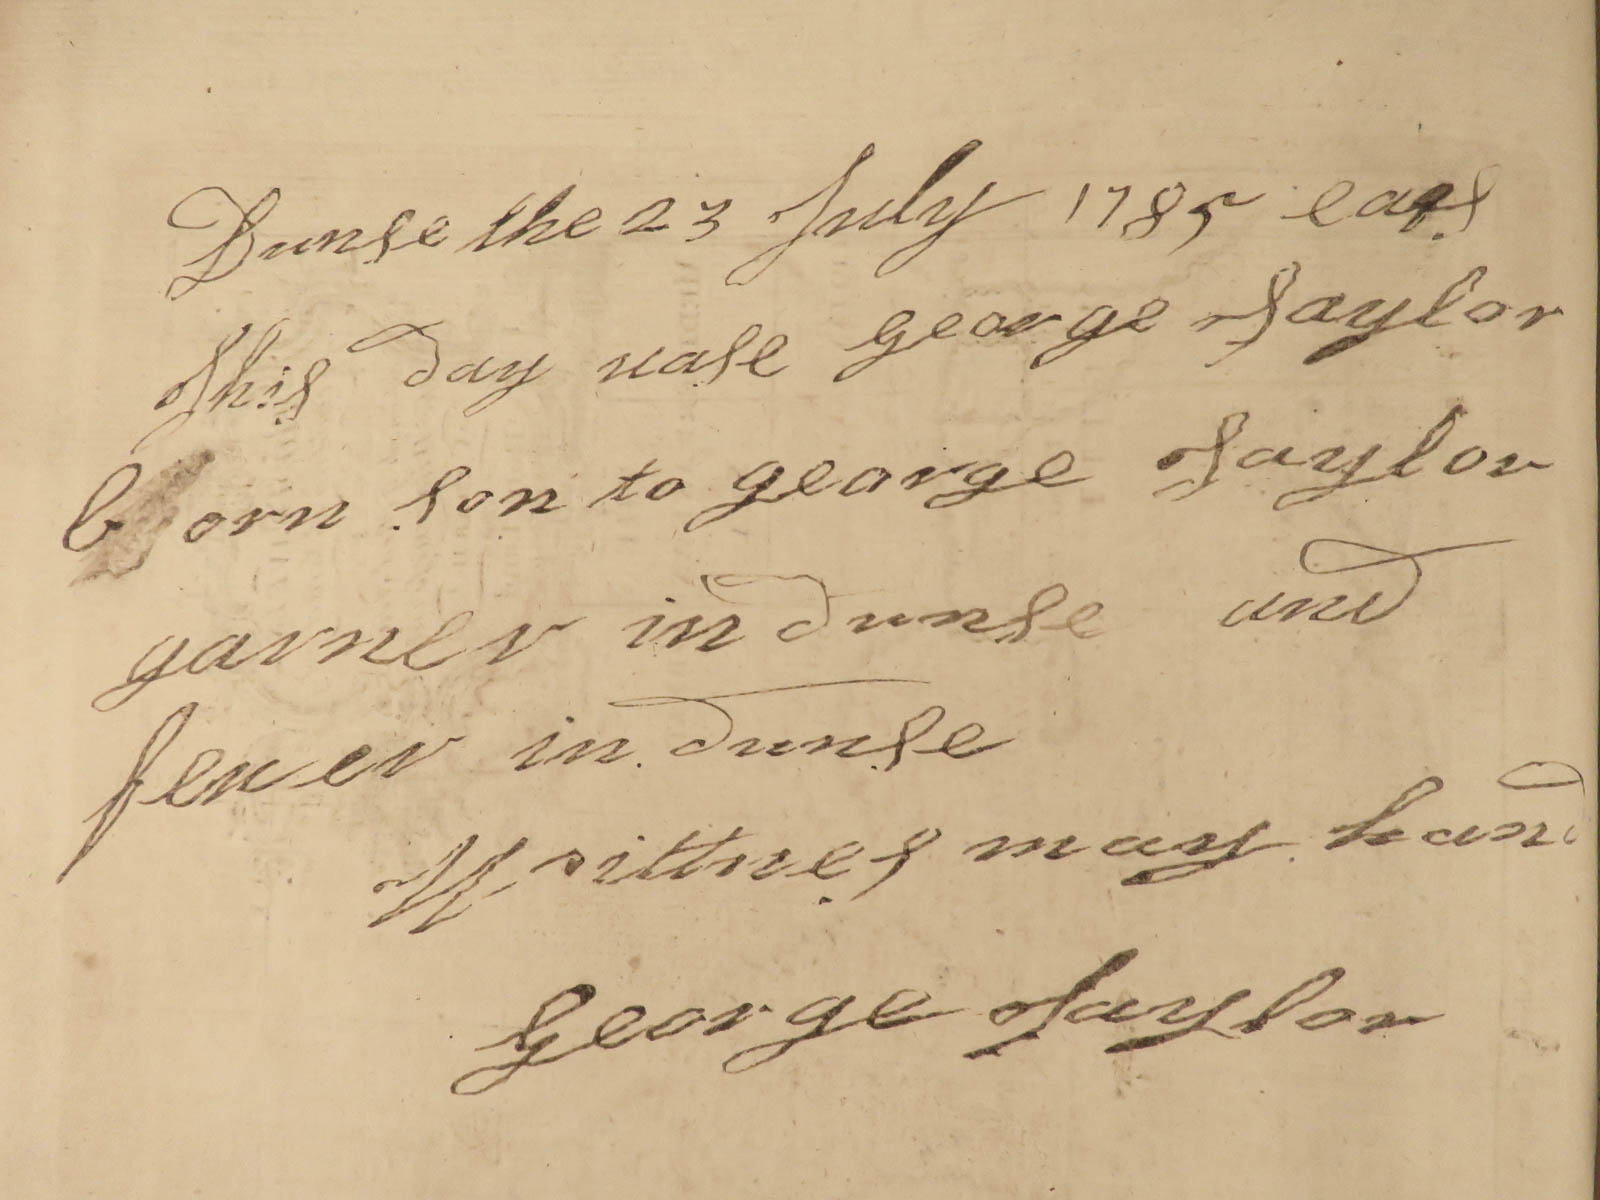 Dunse the 23 July 1785 ears
This day uase george Taylor
born son to george Taylor
garner in dunse and
feuer in dunse
Wittnes may hand
George Taylor